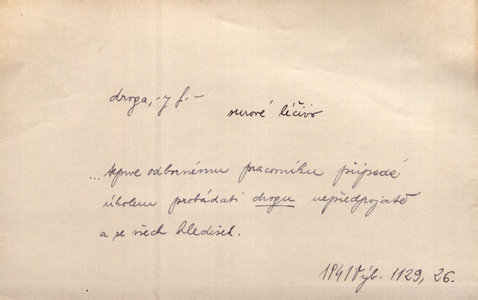 droga, -y f. -
surové léčivo
... teprve odbornému pracovníku připadá
úkolem probádati drogu nepředpojatě
a se všech hledisek.
1941 Výb. 1129, 26.